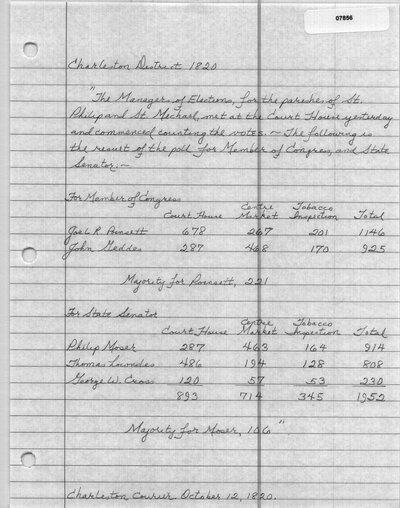 07856
Charleston District 1820
"The Managers of Elections, for the parishes of St.
Philip and St. Michael, met at the Court House yesterday
and commenced counting the votes. ~ The following is
the result of the poll for Member of Congress, and State
Senator:~
For Member of Congress
Court House Centre Market Tobacco Inspection Total
Joel R. Poinsett 678 267 201 1146
John Geddes 287 468 170 925
Majority for Poinsett, 221
For State Senator
Court House Centre Market Tobacco Inspection Total
Philip Moser 287 463 164 914
Thomas Lowndes 486 194 128 808
George W. Cross 120 57 53 230
893 714 345 1952
Majority for Moser, 106"
Charleston Courier. October 12, 1820.